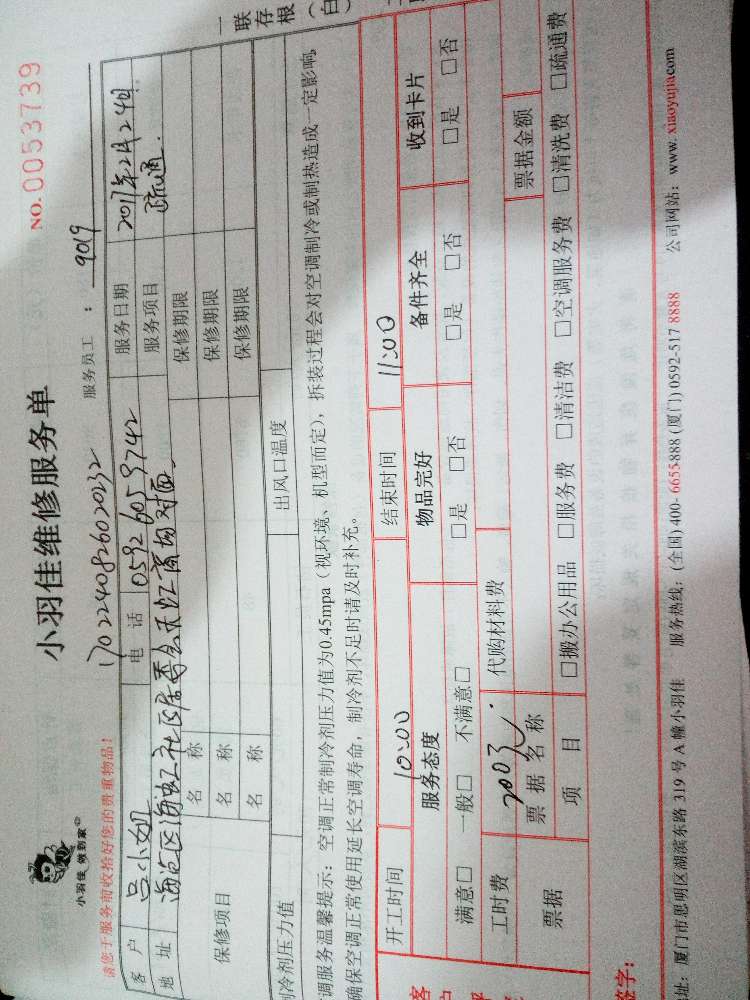 小羽佳 做到家
小羽佳维修服务单
NO. 0053739
请您于服务前收拾好您的贵重物品!
170224082602032
服务员工 : 9019
客 户 吕小姐 电 话 05926059742 服务日期 2017年2月24日
地 址 海沧区海虹社区居委会天虹商场对面 服务项目 疏通
保修项目 名 称 保修期限
名 称 保修期限
名 称 保修期限
制冷剂压力值 出风口温度
调服务温馨提示: 空调正常制冷剂压力值为0.45mpa(视环境、机型而定), 拆装过程会对空调制冷或制热造成一定影响,
确保空调正常使用延长空调寿命, 制冷剂不足时请及时补充。
一联存根(白)
开工时间 10:00 结束时间 11:00
服务态度 物品完好 备件齐全 收到卡片
满意□ 一般□ 不满意□ □是 □否 □是 □否 □是 □否
工时费 200元 代购材料费
票据 票 据 名 称 票据金额
项 目 □搬办公用品 □服务费 □清洁费 □空调服务费 □清洗费 □疏通费
签字:
址: 厦门市思明区湖滨东路 319 号 A 幢小羽佳 服务热线: (全国) 400- 6655-888 (厦门) 0592-517 8888 公司网站: www. xiaoyujia.com